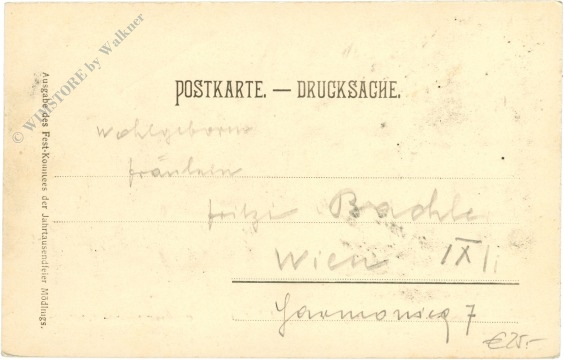 © WIMSTORE by Walkner
POSTKARTE. — DRUCKSACHE.
Wohlgeboren
Fräulein
Fritzi Bachle
Wien IX/1
Harmonieg 7
Ausgabe des Fest-Komitees der Jahrtausendfeier Mödlings.
€25.-